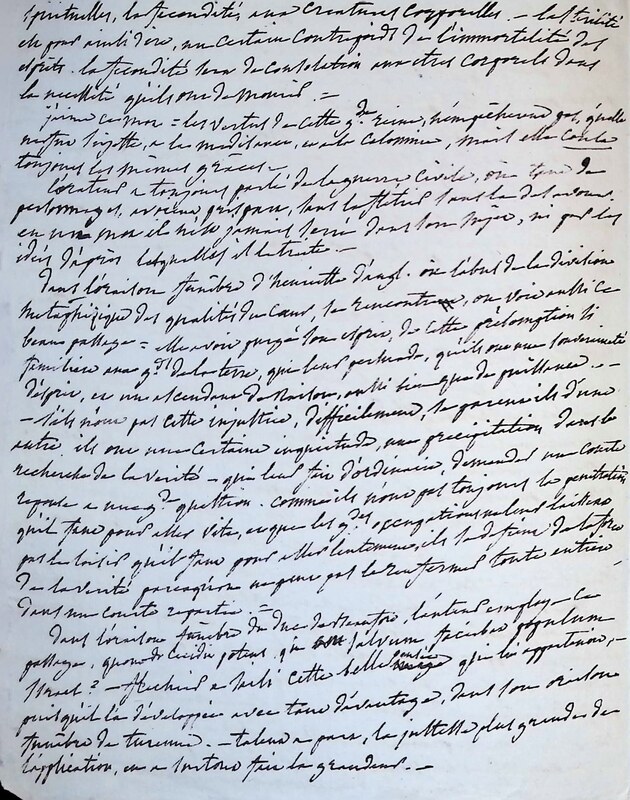 spirituelles, la fécondité aux créatures corporelles. — la stérilité
est pour ainsi dire, un certain contrepoids de l'immortalité des
esprits. la fécondité sera de consolation aux etres corporels dans
la necessité qu'ils ont de mourir. =
j'aime ce mot = les vertus de cette gde reine, n'empêchent pas, qu'elle
à la medisance, et à la calomnie, mais elle
toujours les mêmes graces. —
l'orateur a toujours parlé de la guerre civile, où tant de
personnages, avoient pris part, sans la
en un mot il n'est jamais dans son sujet, ni par les
idées d'après lesquelles il le traite. —
dans l'oraison funèbre d'henriette d'angl. où l'abus de la division
metaphizique des qualités du cœur, se rencontre, on voit aussi ce
beau passage = elle avoit purgé son esprit, de cette présomption si
familiere aux gds de la terre, qui leur persuade, qu'ils ont une souveraineté
d'esprit, et un ascendant de raison, aussi bien que de puissance. —
— s'ils n'ont pas cette injustice, difficilement, se parent ils d'une
autre. ils ont une certaine inquietude, une precipitation dans la
recherche de la verité — qui leur fait d'ordinaire, demander une courte
reponse a une gde question. comme ils n'ont pas toujours la penetration
qu'il faut pour aller vite, et que les gdes occupations ne leur laissent
pas le loisir qu'il faut pour aller lentement, ils
de la verité parce qu'on ne peut pas la renfermer toute entiere
dans une courte repartie. =
dans l'oraison funèbre du duc de l'auteur employe ce
passage, quomodo cecidit potens, qui salvum faciebat populum
Israel? — flechier a saisi cette belle qui lui appartenoit, —
puisqu'il l'a développée avec tant d'avantage, dans son oraison
funèbre de turenne. — talent a part, la justesse plus grande de
l'application, en a surtout fait la grandeur. —